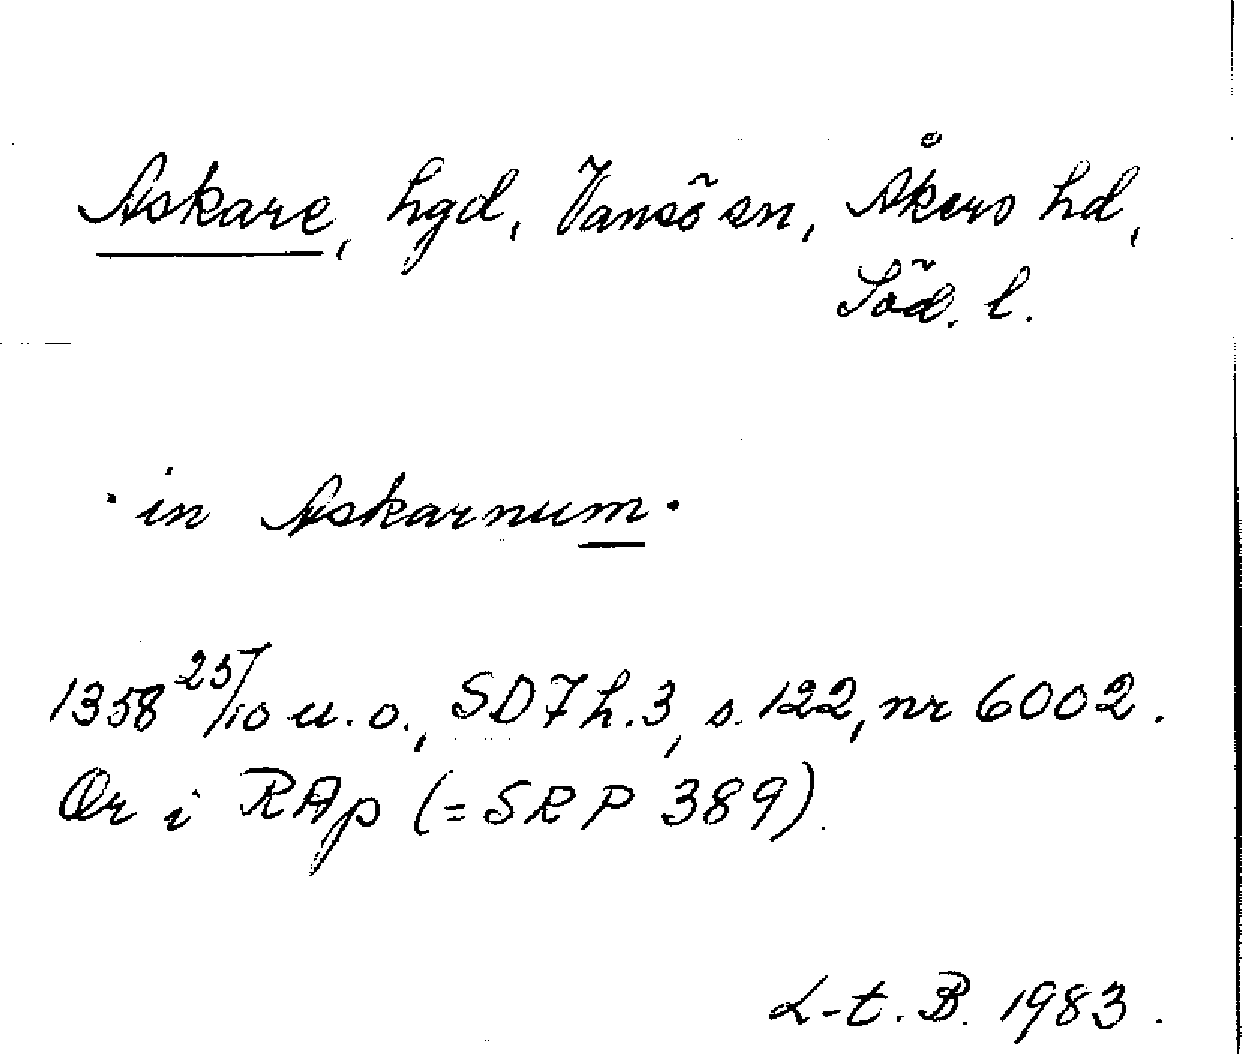 Askare, hgd, Vansö sn, Åkers hd,
Söd. l.
· in Askarnum ·
1358 25/10 u.o., SD 7 h.3, s. 122, nr 6002.
Or i RAp (= SRP 389).
L-t. B. 1983.